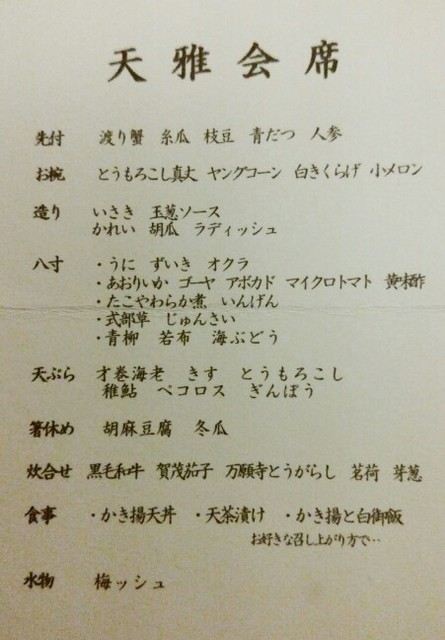 天雅会席
先付 渡り蟹 糸瓜 枝豆 青だつ 人参
お椀 とうもろこし真丈 ヤングコーン 白きくらげ 小メロン
造り いさき 玉葱ソース
かれい 胡瓜 ラディッシュ
八寸 ・うに ずいき オクラ
・あおりいか ゴーヤ アボカド マイクロトマト 黄味酢
・たこやわらか煮 いんげん
・式部草 じゅんさい
・青柳 若布 海ぶどう
天ぷら 才巻海老 きす とうもろこし
稚鮎 ペコロス ぎんぽう
箸休め 胡麻豆腐 冬瓜
炊合せ 黒毛和牛 賀茂茄子 万願寺とうがらし 茗荷 芽葱
食事 ・かき揚天丼 ・天茶漬け ・かき揚と白御飯
お好きな召し上がり方で…
水物 梅ッシュ